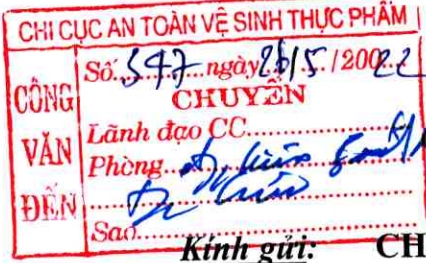 CHI CỤC AN TOÀN VỆ SINH THỰC PHẨM
CÔNG VĂN ĐẾN
Số. 547 ngày 26/5./200 22
CHUYỂN
Lãnh đạo CC
Phòng
Sao
Kính gửi: CH